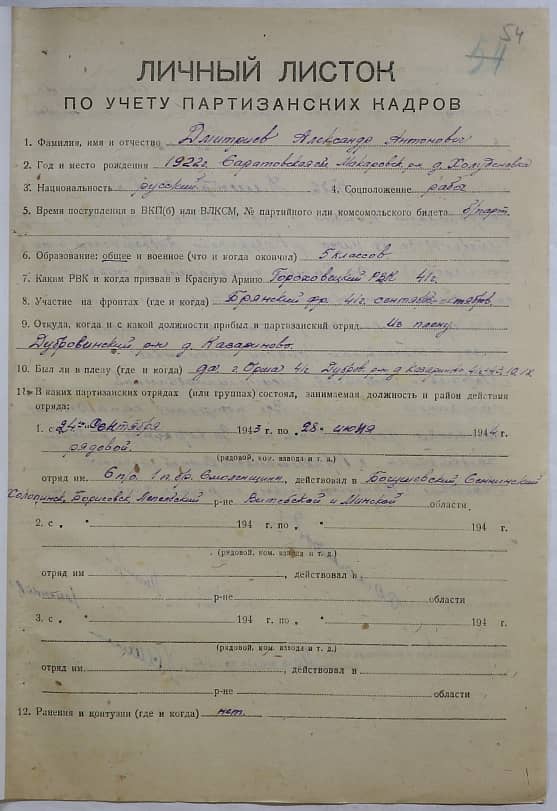 54
54
ЛИЧНЫЙ ЛИСТОК
ПО УЧЕТУ ПАРТИЗАНСКИХ КАДРОВ
1. Фамилия, имя и отчество Дмитриев Александр Антонович
2. Год и место рождения 1922г. Саратовская обл. Макаровск. р-н д.
3. Национальность русский 4. Соцположение раб.
5. Время поступления в ВКП(б) или ВЛКСМ, № партийного или комсомольского билета б/парт.
6. Образование: общее и военное (что и когда окончил) 5 классов
7. Каким РВК и когда призван в Красную Армию Гороховецкий РВК 41г.
8. Участие на фронтах (где и когда) Брянский фр. 41г. сентябрь-октябрь.
9. Откуда, когда и с какой должности прибыл в партизанский отряд. Из плену
Дубровинский р-н д. Казариново.
10. Был ли в плену (где и когда) да г. Орша 41г. Дубров. р-н д. Казариново
11. В каких партизанских отрядах (или группах) состоял, занимаемая должность и район действия
отряда:
1. с 24 сентября 1943 г. по 28 июня 1944 г.
рядовой.
(рядовой, ком. взвода и т. д.)
отряд им. 6 п/о 1 п. бр. Смоленщина, действовал в Богушевский, Сеннинский
Холопинск, Борисовск, Лепельский р-не Витебской и Минской области.
2. с „ " 194 г. по „ " 194 г.
(рядовой, ком. взвода и т. д.)
отряд им , действовал в
р-не области
3. с „ " 194 г. по „ " 194 г.
(рядовой, ком. взвода и т. д.)
отряд им. , действовал в
р-не области
12. Ранения и контузии (где и когда) нет.